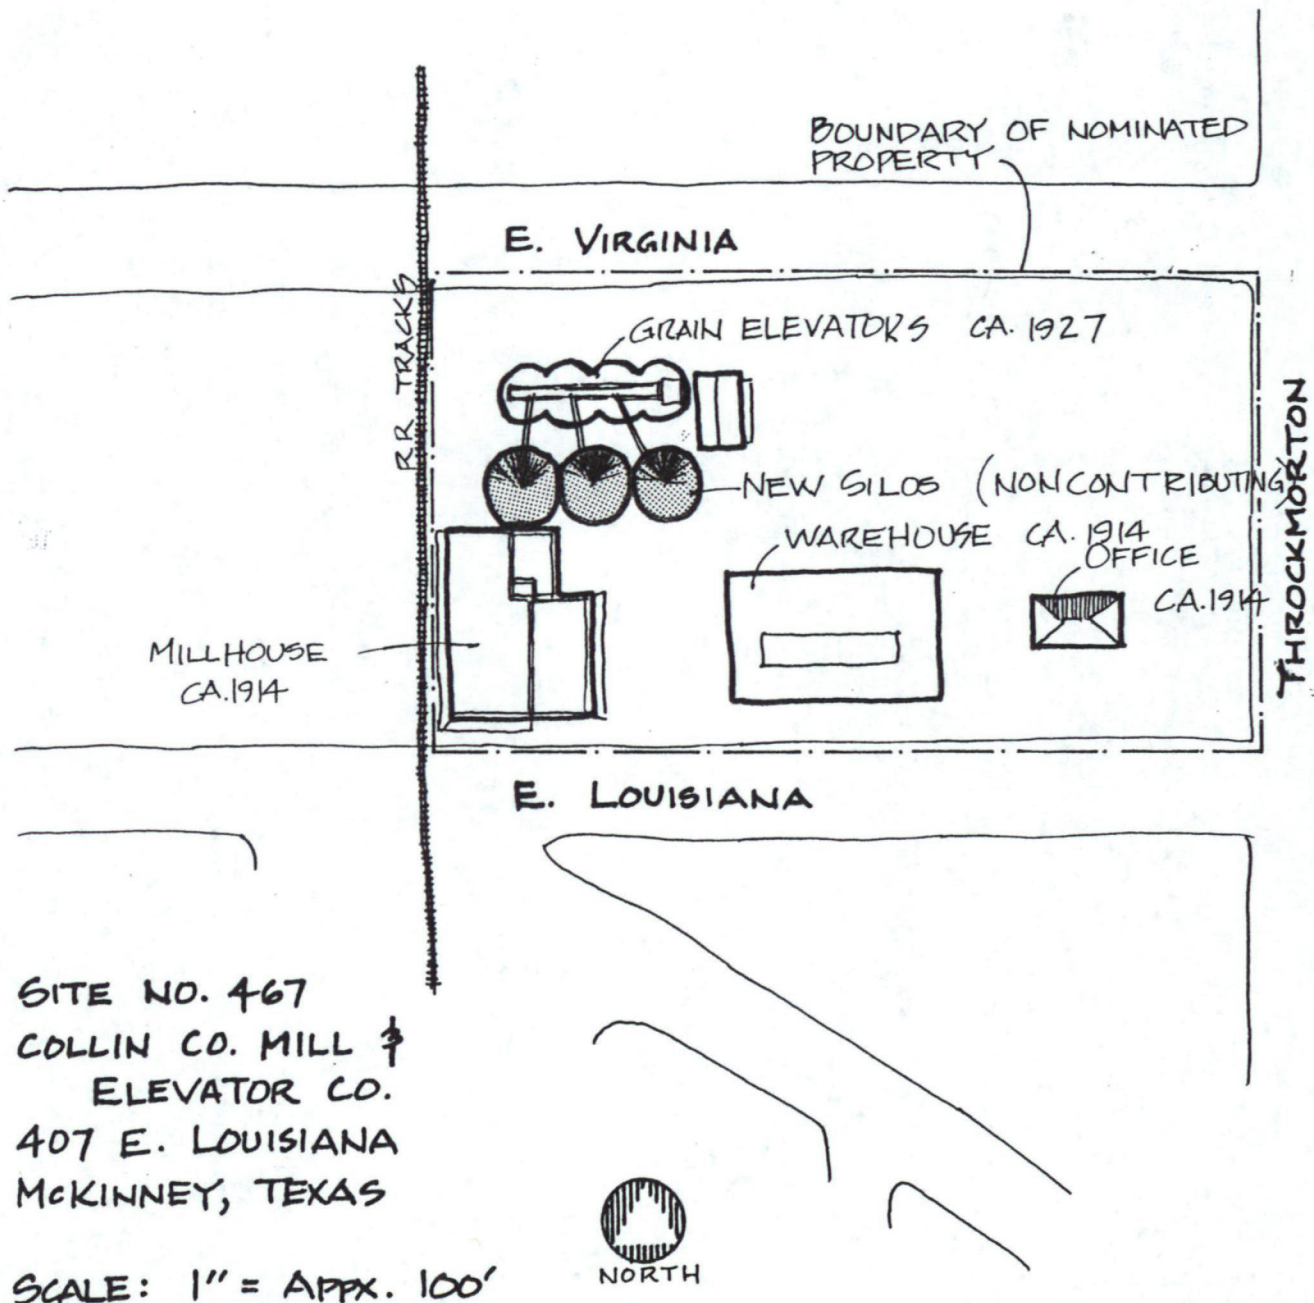 BOUNDARY OF NOMINATED
PROPERTY
E. VIRGINIA
R.R. TRACKS
GRAIN ELEVATORS CA. 1927
THROCKMORTON
NEW SILOS (NONCONTRIBUTING)
WAREHOUSE CA. 1914
OFFICE
CA. 1914
MILLHOUSE
CA. 1914
E. LOUISIANA
SITE NO. 467
COLLIN CO. MILL &
ELEVATOR CO.
407 E. LOUISIANA
McKINNEY, TEXAS
SCALE: 1" = APPX. 100'
NORTH